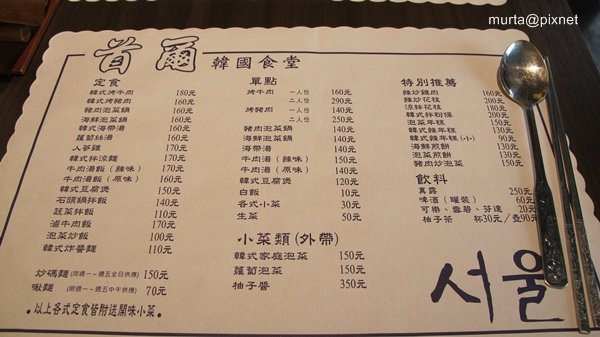 murta@pixnet
首爾 韓國食堂
定食
韓式烤牛肉 180元
韓式烤豬肉 160元
豬肉泡菜鍋 160元
海鮮泡菜鍋 160元
韓式海帶湯 160元
蘿蔔絲湯 160元
人蔘雞 170元
韓式拌涼麵 170元
牛肉湯飯(辣味) 170元
牛肉湯飯(原味) 160元
韓式豆腐煲 150元
石頭鍋拌飯 130元
蔬菜拌飯 110元
滷牛肉飯 110元
泡菜炒飯 100元
韓式炸醬麵 110元
炒碼麵(限週一~週五全日供應) 150元
啾麵(限週一~週五中午供應) 70元
●以上各式定食皆附送開味小菜。
單點
烤牛肉 一人份 160元
二人份 290元
烤豬肉 一人份 140元
二人份 250元
豬肉泡菜鍋 140元
海鮮泡菜鍋 140元
海帶湯 140元
牛肉湯(辣味) 150元
牛肉湯(原味) 140元
韓式豆腐煲 120元
白飯 10元
各式小菜 30元
生菜 50元
小菜類(外帶)
韓式家庭泡菜 150元
蘿蔔泡菜 150元
柚子醬 350元
特別推薦
辣炒雞肉 160元
辣炒花枝 200元
涼拌花枝 180元
韓式拌粉條 200元
泡菜年糕 150元
韓式辣年糕 150元
韓式辣年糕(小) 90元
海鮮煎餅 130元
泡菜煎餅 130元
豬肉炒泡菜 150元
飲料
真露 250元
啤酒(罐裝) 60元
可樂、雪碧、芬達 20元
柚子茶 杯30元/壺90元
서울